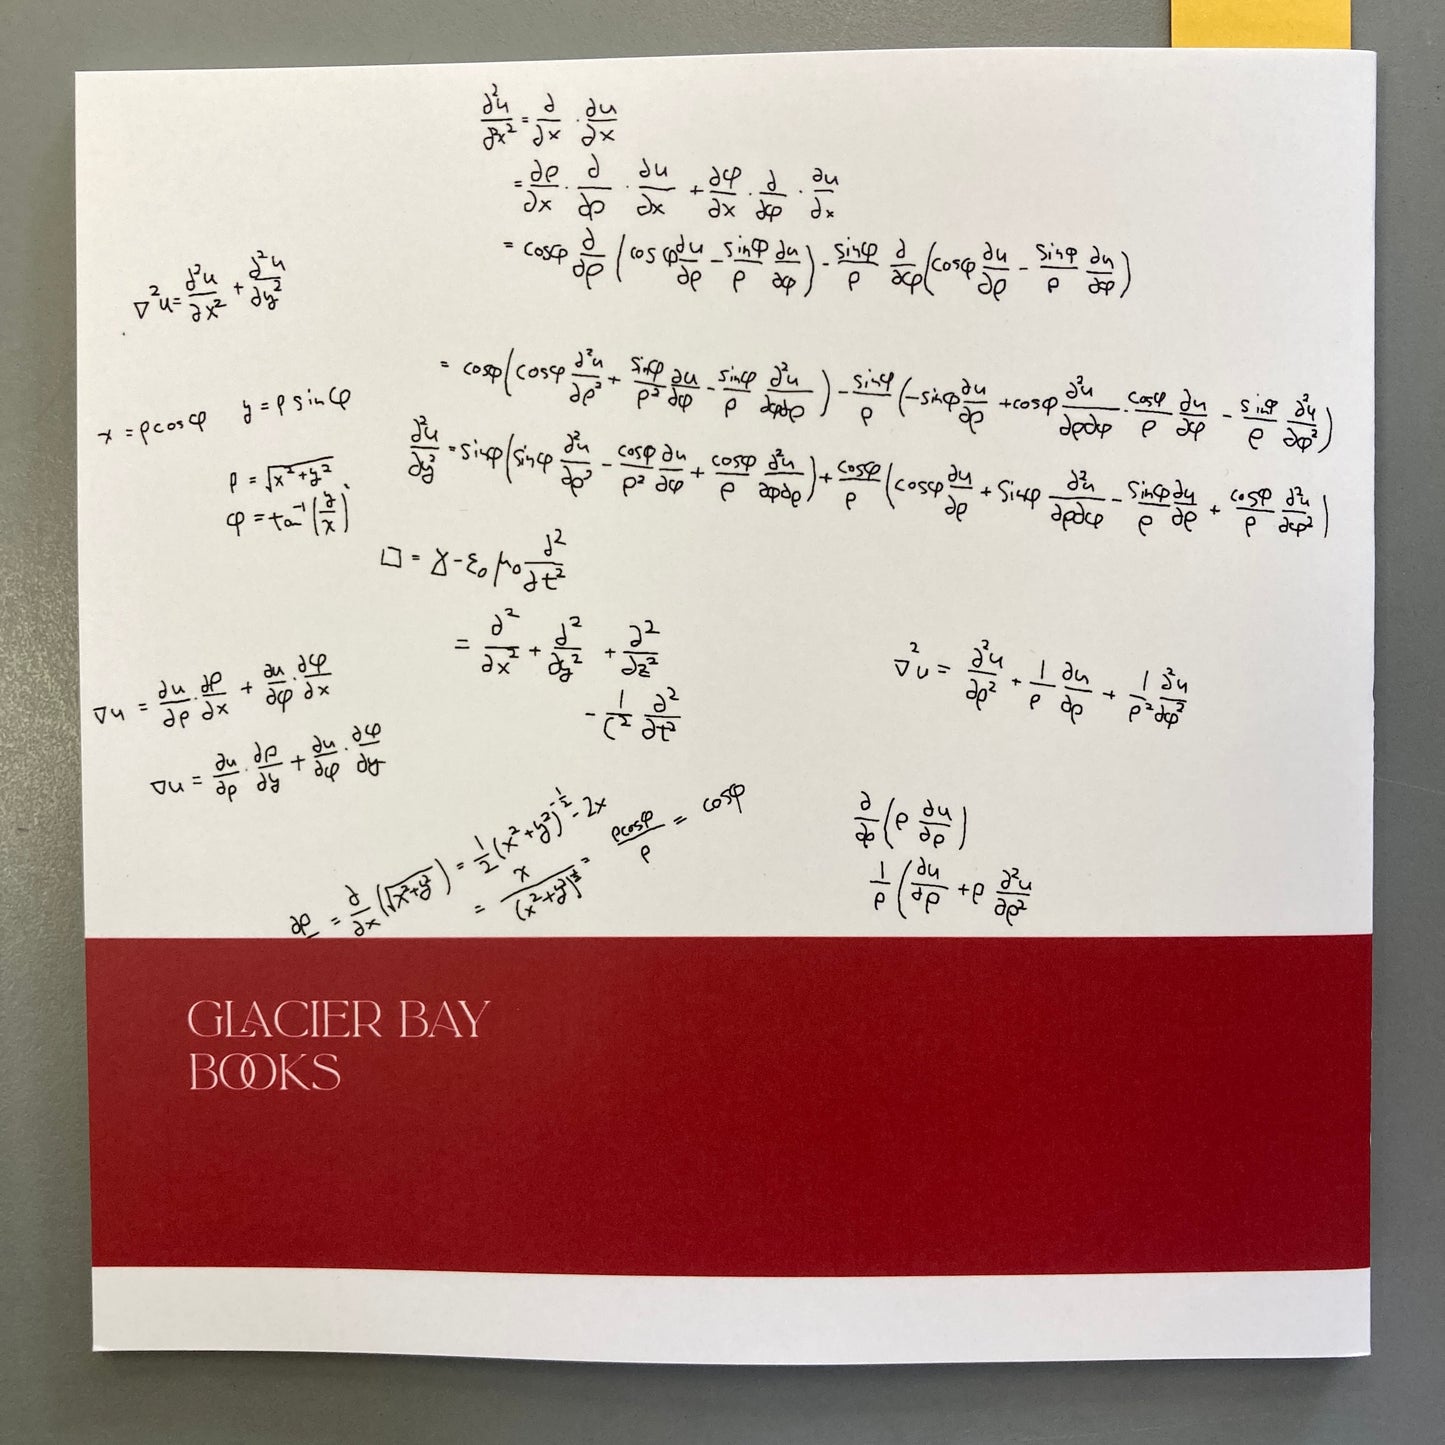 ∂²u/∂x² = ∂/∂x · ∂u/∂x
= ∂ρ/∂x · ∂/∂ρ · ∂u/∂x + ∂φ/∂x · ∂/∂φ · ∂u/∂x
= cosφ ∂/∂ρ (cosφ ∂u/∂ρ - sinφ/ρ ∂u/∂φ) - sinφ/ρ ∂/∂φ (cosφ ∂u/∂ρ - sinφ/ρ ∂u/∂φ)
∇²u = ∂²u/∂x² + ∂²u/∂y²
= cosφ(cosφ ∂²u/∂ρ² + sinφ/ρ² ∂u/∂φ - sinφ/ρ ∂²u/∂φ∂ρ) - sinφ/ρ (-sinφ ∂u/∂ρ + cosφ ∂²u/∂ρ∂φ · cosφ/ρ ∂u/∂φ - sinφ/ρ ∂²u/∂φ²)
x = ρcosφ y = ρ sinφ
∂²u/∂y² = sinφ(sinφ ∂²u/∂ρ² - cosφ/ρ² ∂u/∂φ + cosφ/ρ ∂²u/∂φ∂ρ) + cosφ/ρ (cosφ ∂u/∂ρ + sinφ ∂²u/∂ρ∂φ - sinφ/ρ ∂u/∂ρ + cosφ/ρ ∂²u/∂φ²)
ρ = √(x²+y²)
φ = tan⁻¹(y/x)
□ = - ε₀ μ₀ ∂²/∂t²
= ∂²/∂x² + ∂²/∂y² + ∂²/∂z²
- 1/c² ∂²/∂t²
∇u = ∂u/∂ρ · ∂ρ/∂x + ∂u/∂φ · ∂φ/∂x
∇u = ∂u/∂ρ · ∂ρ/∂y + ∂u/∂φ · ∂φ/∂y
∇²u = ∂²u/∂ρ² + 1/ρ ∂u/∂ρ + 1/ρ² ∂²u/∂φ²
∂ρ = ∂/∂x (√(x²+y²)) = 1/2 (x²+y²)^(-1/2) - 2x
= x/(x²+y²)^½ = ρcosφ/ρ = cosφ
∂/∂ρ (ρ ∂u/∂ρ)
1/ρ (∂u/∂ρ + ρ ∂²u/∂ρ²
GLACIER BAY
BOOKS